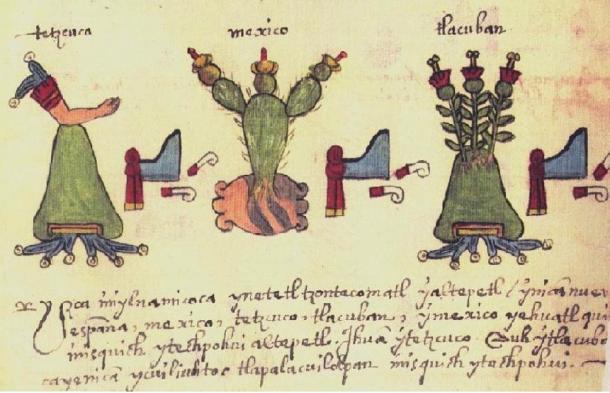 tetzcuca mexico tlacuban
yzca ymixnamicoca ynetetl tzontecomatl yaltepetl / ynican nuev
españa, mexico, tetzcuco, tlacuban, ymexico yehuatl qui
misquich ytechpohui altepetl. Ihuā ytetzcuco. Auh ytlacuba
ca yenicā ycuiliuhtoc tlapalacuilolpan misquich ytechpohui.